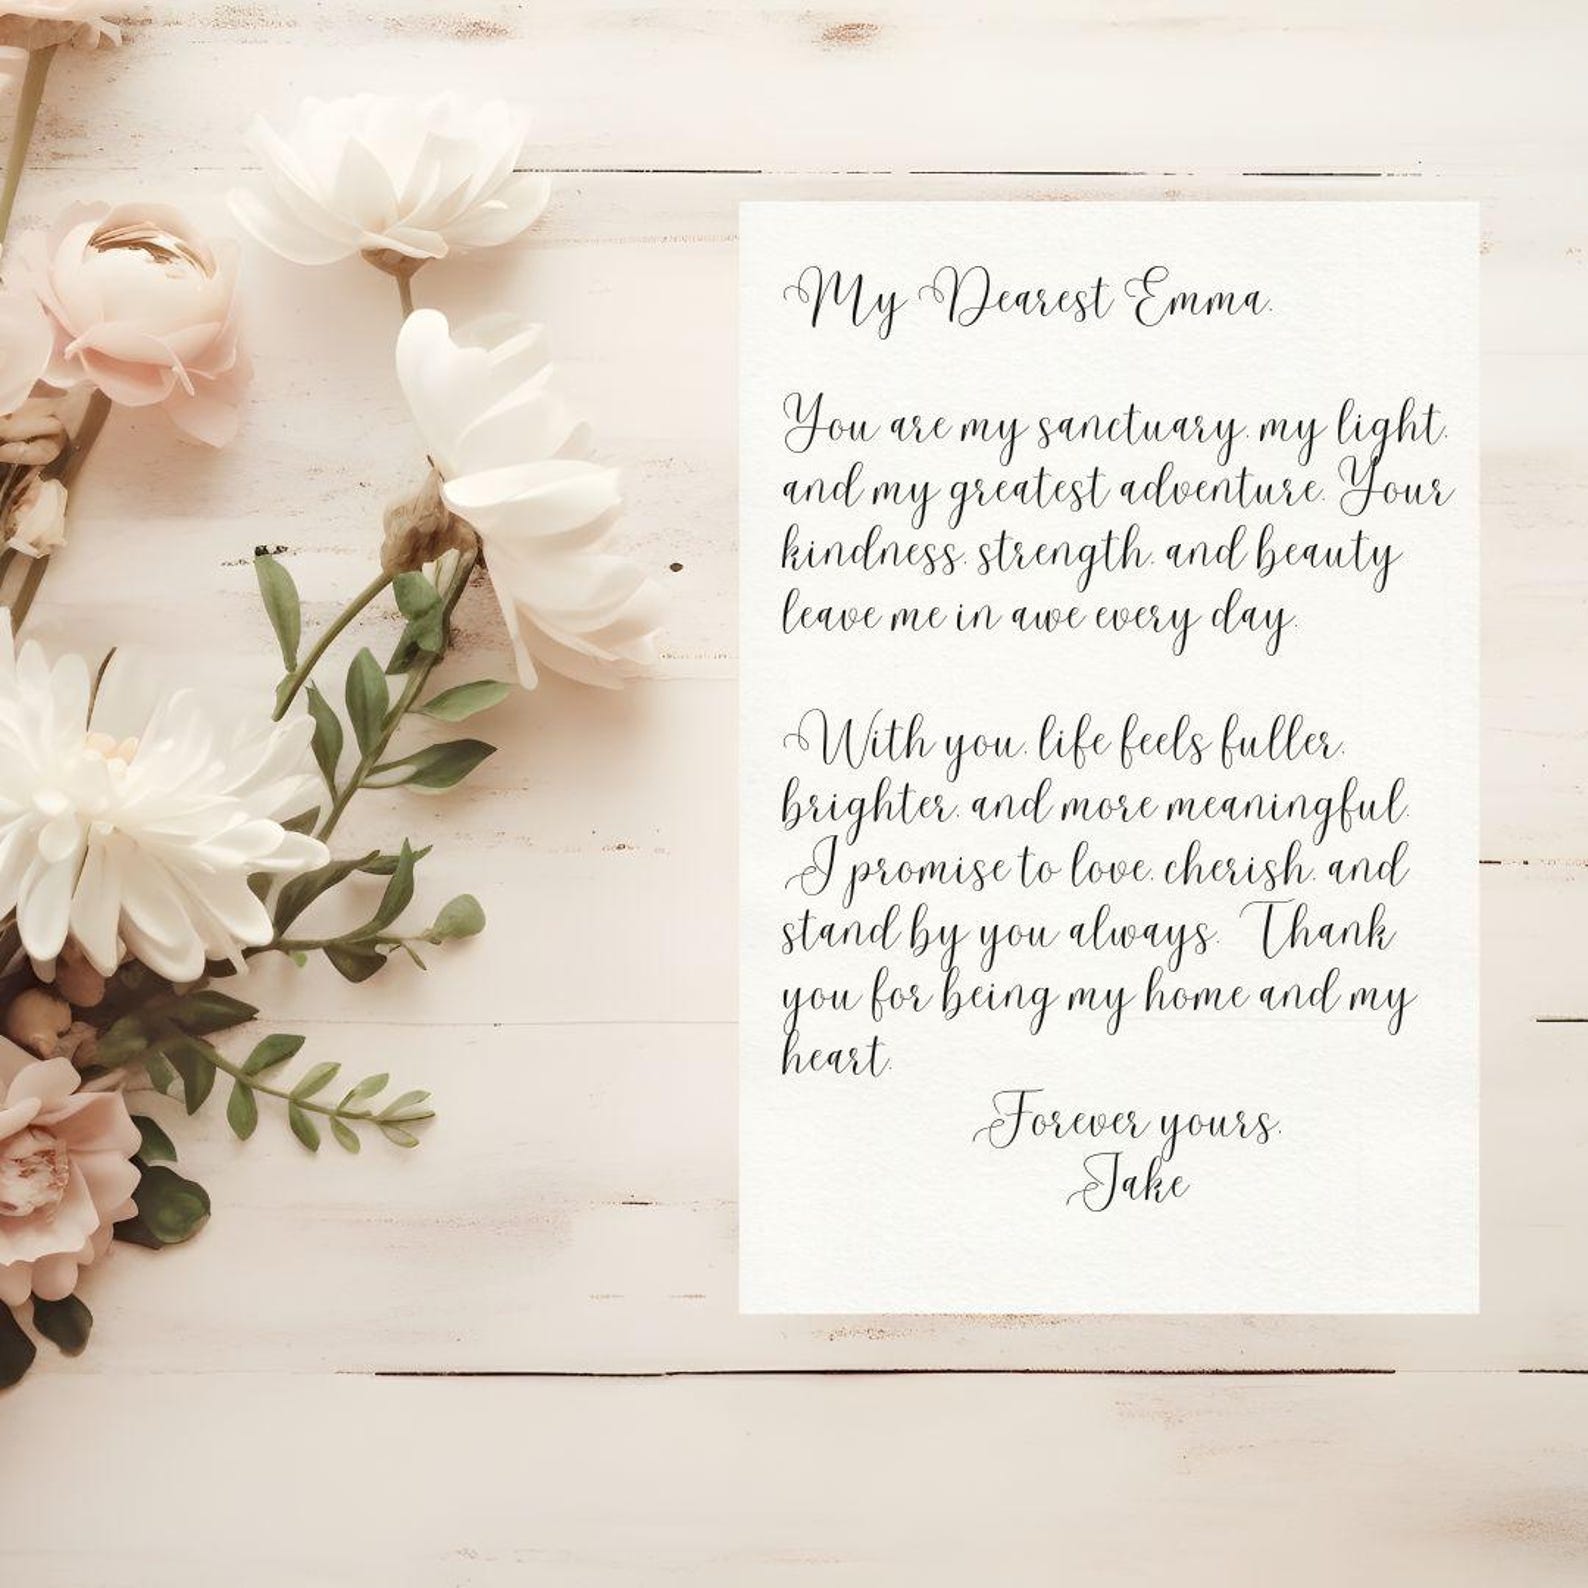 My Dearest Emma,
You are my sanctuary, my light,
and my greatest adventure. Your
kindness, strength, and beauty
leave me in awe every day.
With you, life feels fuller,
brighter, and more meaningful.
I promise to love, cherish, and
stand by you always. Thank
you for being my home and my
heart.
Forever yours,
Jake